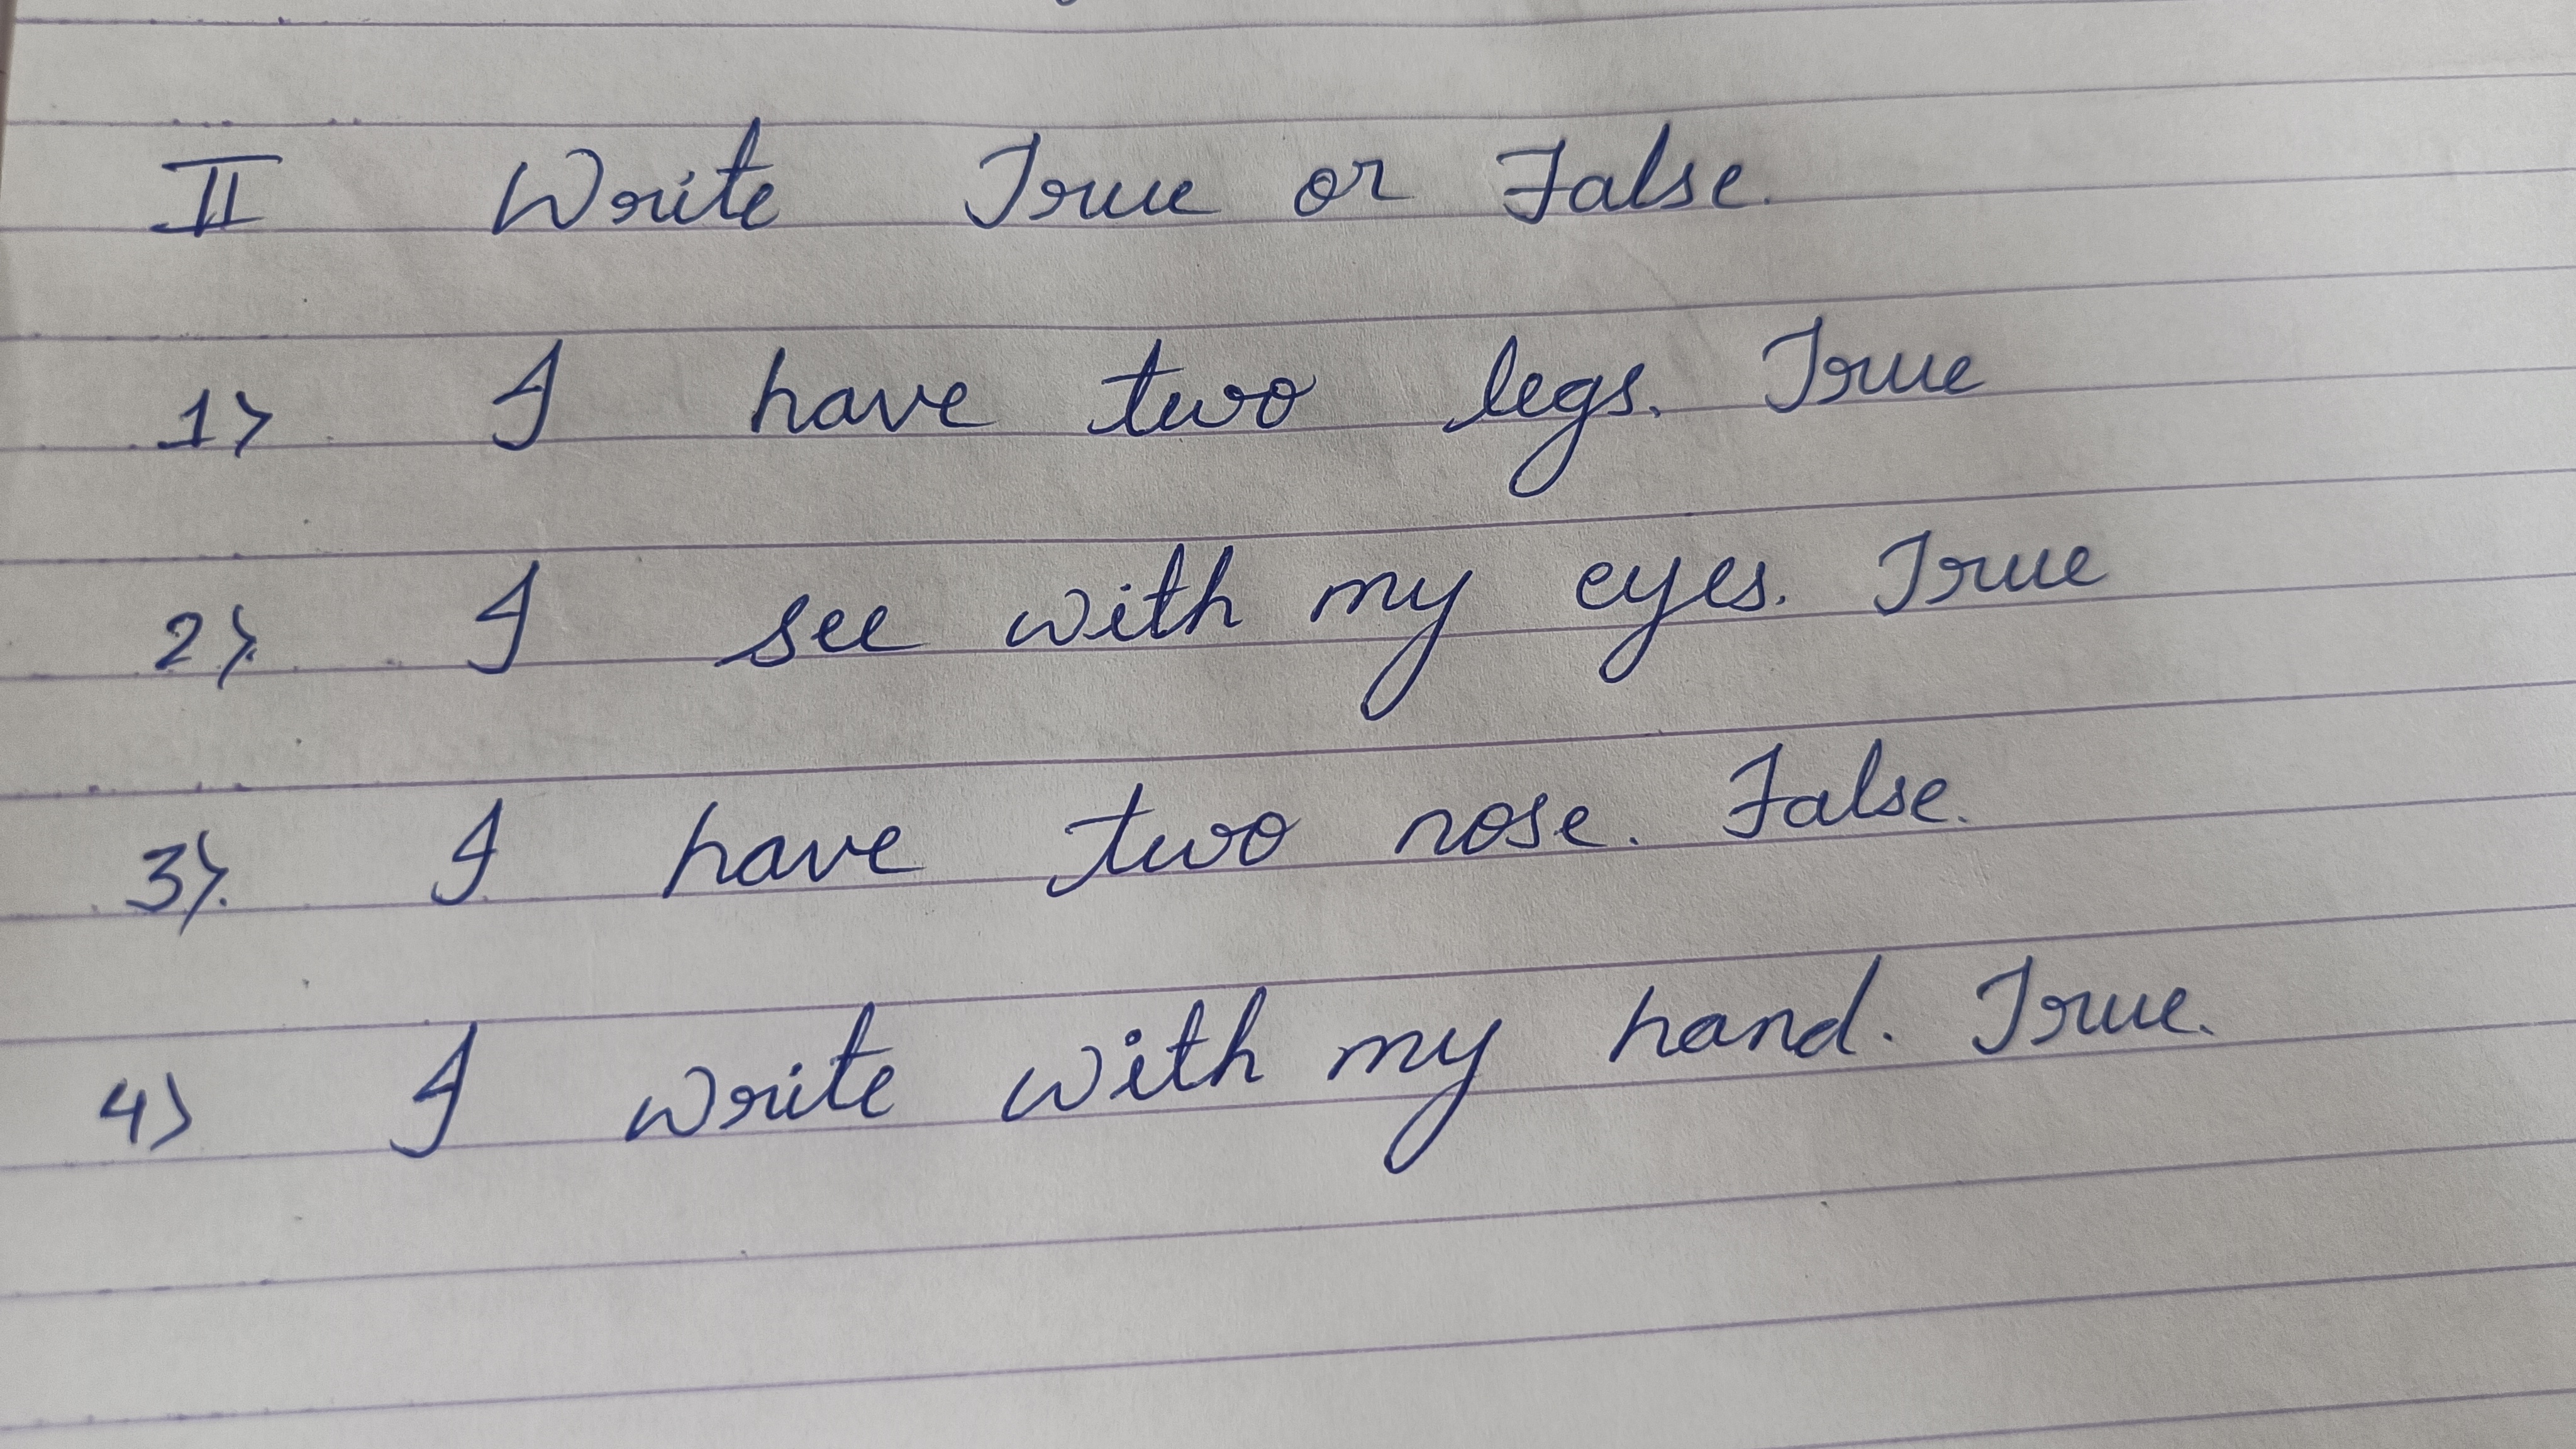 II Write True or False.
1> I have two legs. True
2> I see with my eyes. True
3> I have two nose. False.
4> I write with my hand. True.